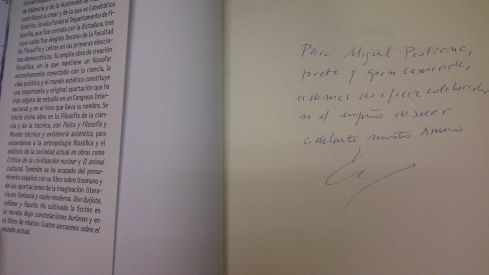 de Valencia y de la Autónoma de Madrid
contribuyó a crear y de la que es Catedrático
Emérito. En ella fundó el Departamento de Fi-
losofía, que fue cerrado por la dictadura, tras
cuya caída fue elegido Decano de la Facultad
de Filosofía y Letras en las primeras eleccio-
nes democráticas. Su amplia obra de creación
filosófica, en la que mantiene un filosofar
estrechamente conectado con la ciencia, la
vida política y el mundo estético constituye
una importante y original aportación que ha
sido objeto de estudio en un Congreso Inter-
nacional y en el Foro que lleva su nombre. Se
inicia dicha obra en la Filosofía de la cien-
cia y de la técnica, con Física y Filosofía y
Mundo técnico y existencia auténtica, para
extenderse a la antropología filosófica y el
análisis de la sociedad actual en obras como
Crítica de la civilización nuclear y El animal
cultural. También se ha ocupado del pensa-
miento español con su libro sobre Unamuno y
de las aportaciones de la imaginación litera-
ria en Fantasía y razón moderna. Don Quijote,
Odiseo y Fausto. Ha cultivado la ficción en
la novela Bajo constelaciones burlonas y en
el libro de relatos Cuatro sarcasmos sobre el
mundo actual.
Para Miguel
poeta y gran camarada,
además de eficaz colaborador
en el empeño de sacar
adelante nuestro Ateneo